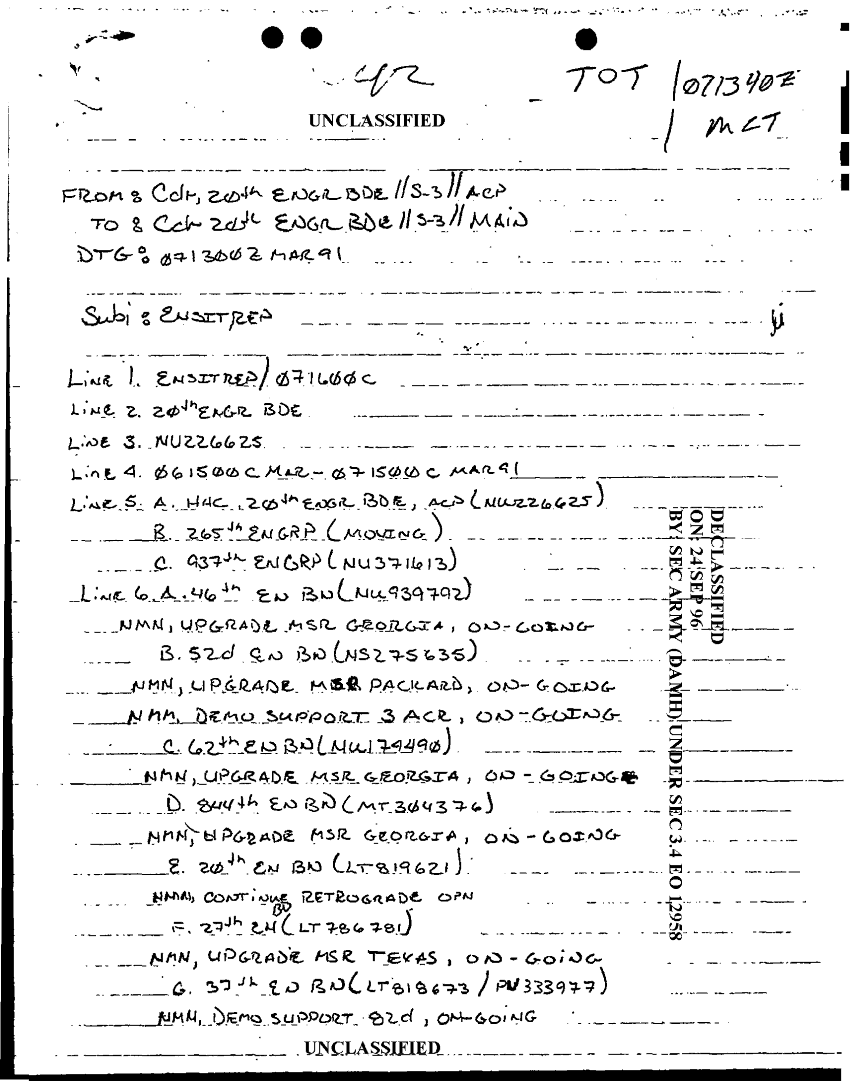 42 TOT / 071340Z
UNCLASSIFIED / MCT
FROM: Cdr, 20th ENGR BDE//S-3//ACP
TO: Cdr 20th ENGR BDE//S-3//MAIN
DTG: 071300Z MAR 91
Subj: ENSITREP
LINE 1. ENSITREP/071600C
LINE 2. 20th ENGR BDE
LINE 3. NU226625
LINE 4. 061500C MAR - 071500C MAR91
LINE 5. A. HHC, 20th ENGR BDE, ACP (NU226625)
B. 265th ENGRP (MOVING)
C. 937th ENGRP (NU371613)
LINE 6. A. 46th EN BN (NU939792)
NMN, UPGRADE MSR GEORGIA, ON-GOING
B. 52d EN BN (NS275635)
NMN, UPGRADE MSR PACKARD, ON-GOING
NMM, DEMO SUPPORT 3 ACR, ON-GOING
C. 62th EN BN (NU179490)
NMN, UPGRADE MSR GEORGIA, ON-GOING
D. 844th EN BN (MT304376)
NMN, UPGRADE MSR GEORGIA, ON-GOING
E. 20th EN BN (LT819621)
NMN, CONTINUE RETROGRADE OPN
F. 27th EN BN (LT786781)
NMN, UPGRADE MSR TEXAS, ON-GOING
G. 37th EN BN (LT818673/PU333977)
NMN, DEMO SUPPORT 82d, ON-GOING
UNCLASSIFIED
DECLASSIFIED
ON: 24 SEP 96
BY: SEC ARMY (DAMH) UNDER SEC 3.4 EO 12958